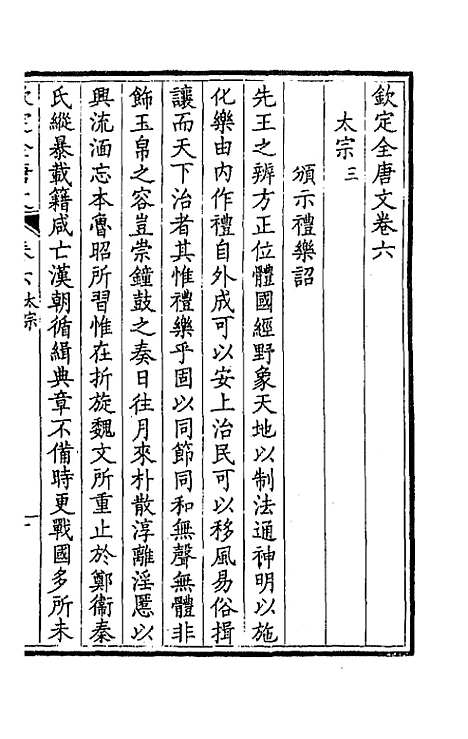 欽定全唐文卷六
太宗三
頒示禮樂詔
先王之辨方正位體國經野象天地以制法通神明以施
化樂由內作禮自外成可以安上治民可以移風易俗揖
讓而天下治者其惟禮樂乎固以同節同和無聲無體非
飾玉帛之容豈崇鐘鼓之奏日往月來朴散淳離淫慝以
興流湎忘本魯昭所習惟在折旋魏文所重止於鄭衞秦
氏縱暴載籍咸亡漢朝循緝典章不備時更戰國多所未
太宗